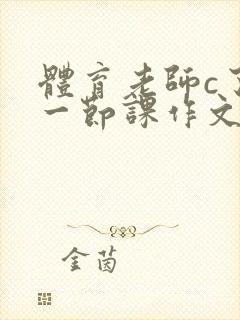 體育老師c
一節課作文
金茵